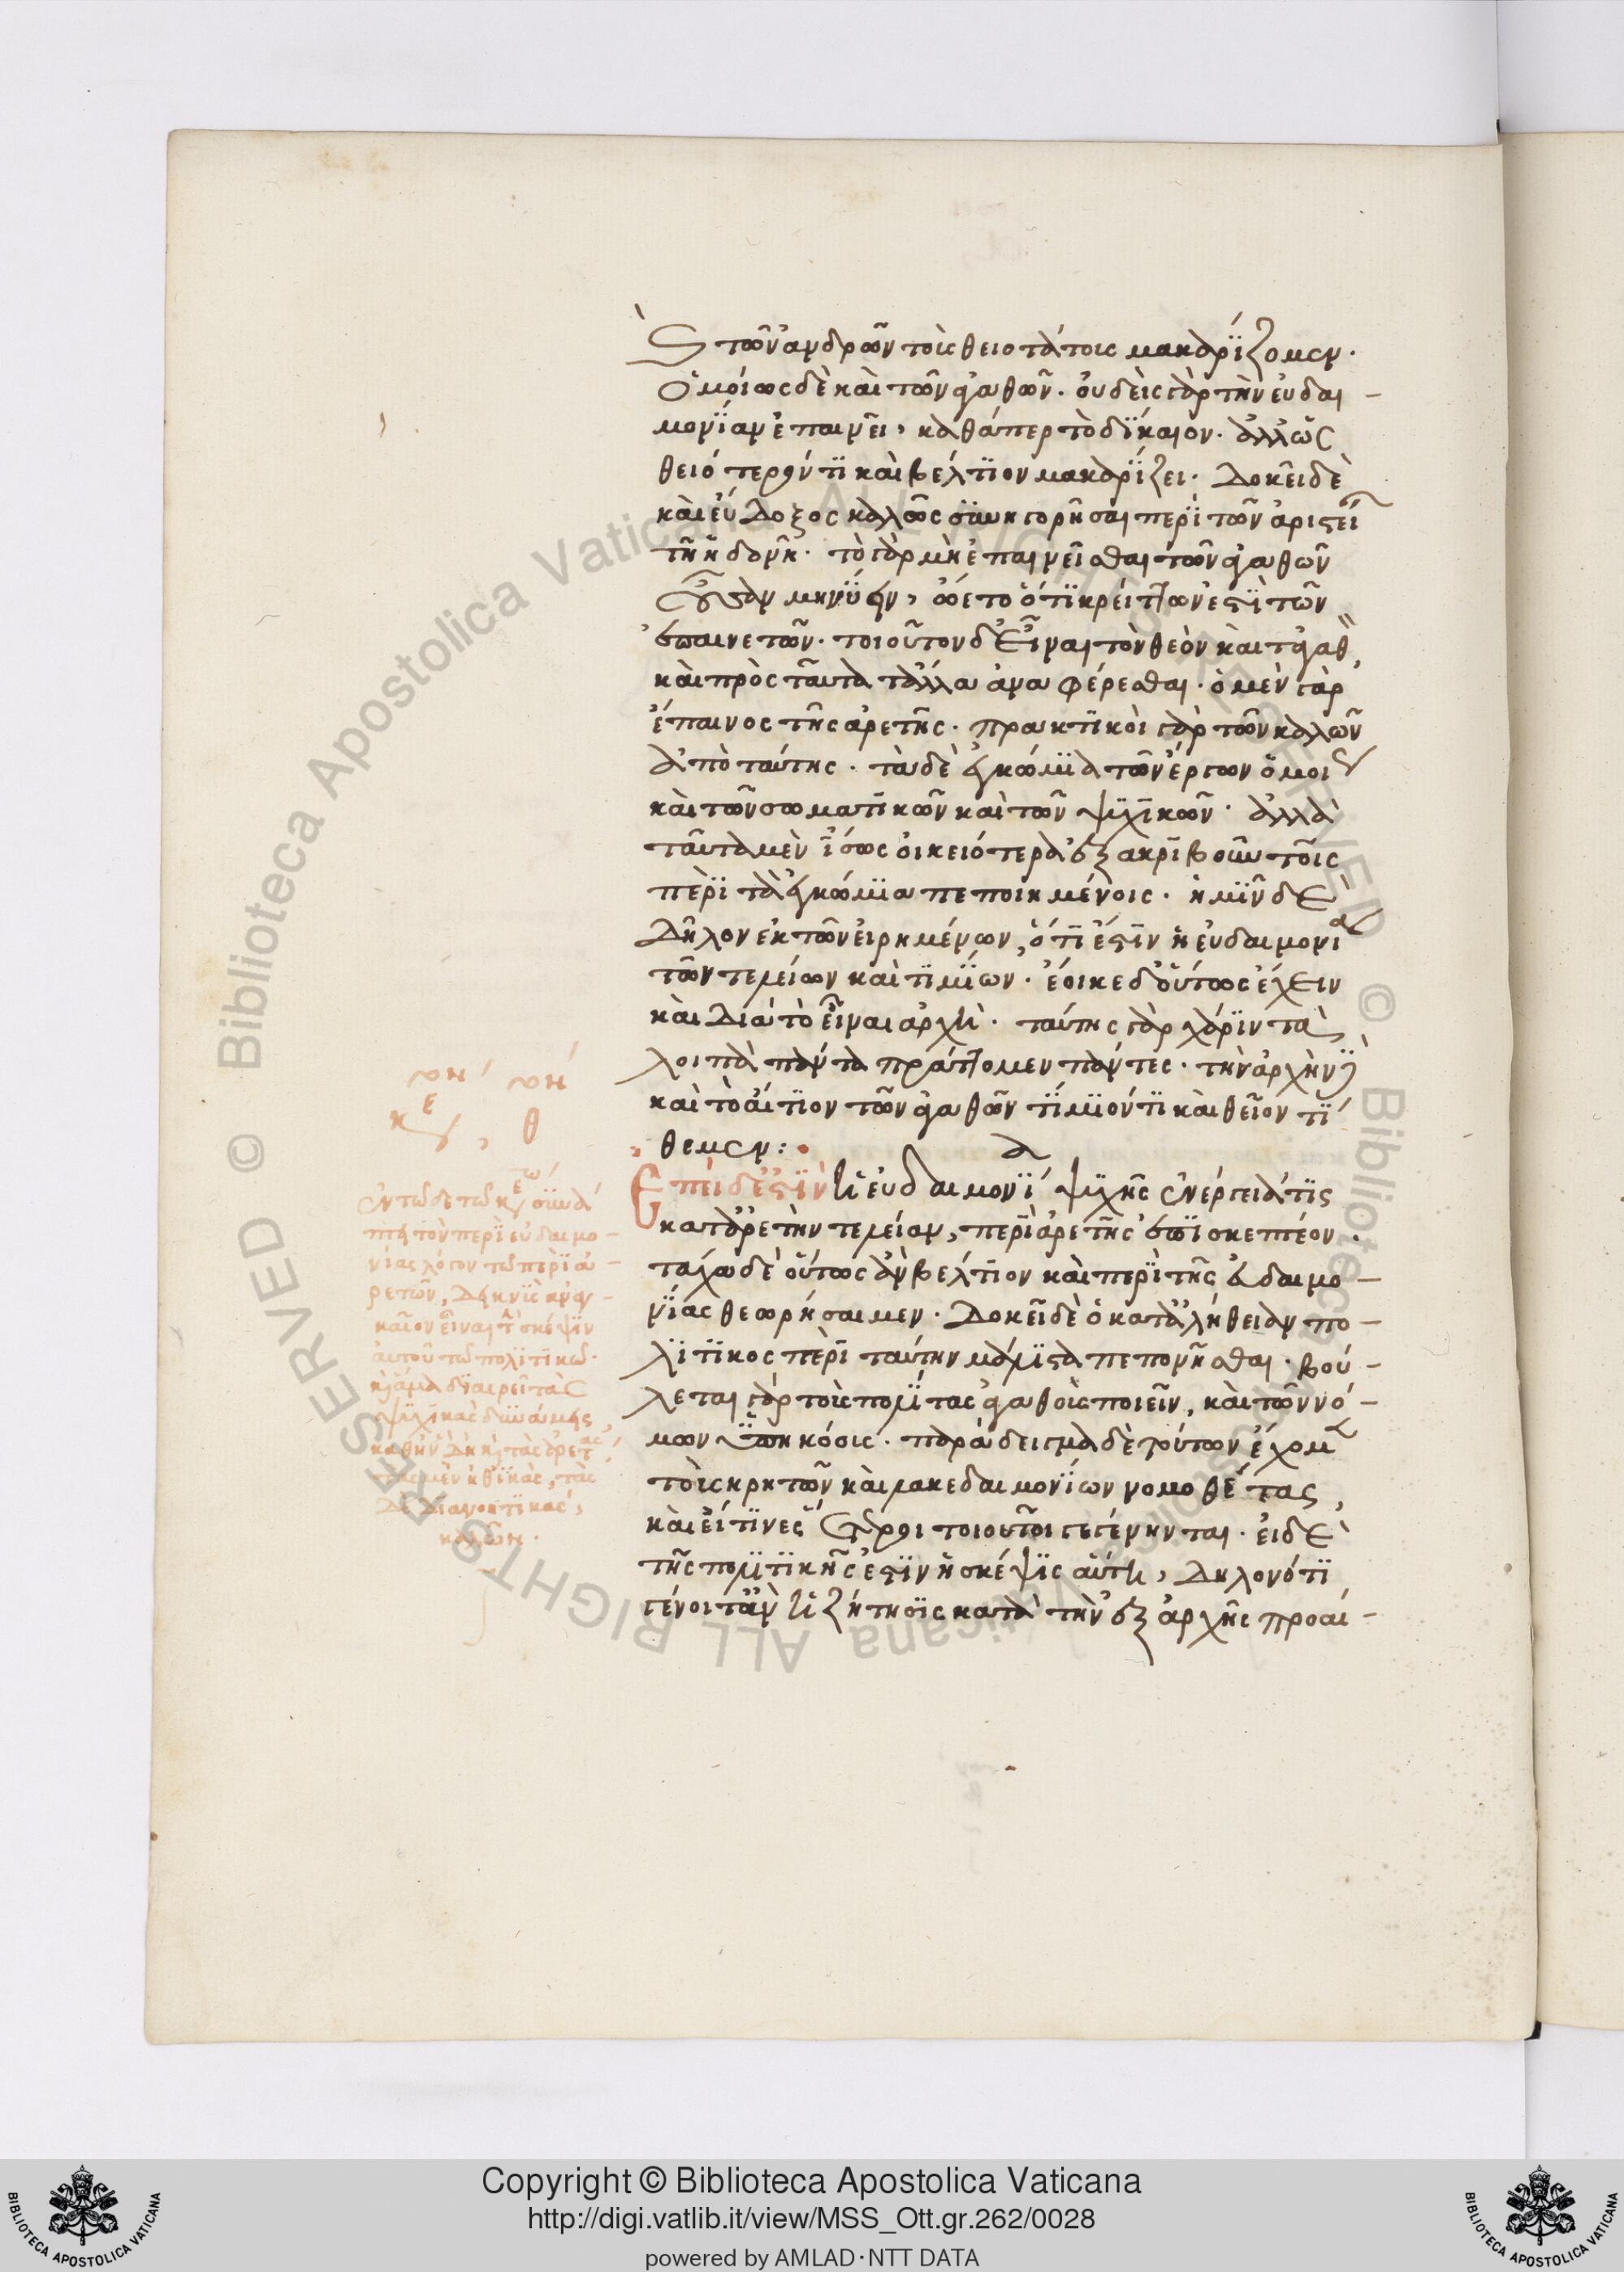 καὶ τῶν ἀνδρῶν τοὺς θειοτάτους μακαρίζομεν.
ὁμοίως δὲ καὶ τῶν ἀγαθῶν. οὐδεὶς γὰρ τὴν εὐδαι-
μονίαν ἐπαινεῖ, καθάπερ τὸ δίκαιον. ἀλλ' ὡς
θειότερόν τι καὶ βέλτιον μακαρίζει. Δοκεῖ δὲ
καὶ εὔδοξος καλῶς συνηγορῆσαι περὶ τῶν ἀριστείων
τῇ ἡδονῇ. τὸ γὰρ μὴ ἐπαινεῖσθαι τῶν ἀγαθῶν
οὖσαν μηνύειν, ᾤετο ὅτι κρεῖττων ἐστὶ τῶν
ἐπαινετῶν. τοιοῦτον δ' εἶναι τὸν θεὸν καὶ τἀγαθ
καὶ πρὸς ταῦτα τἆλλα ἀναφέρεσθαι. ὁ μὲν γὰρ
ἔπαινος τῆς ἀρετῆς. πρακτικοὶ γὰρ τῶν καλῶν
ἀπὸ ταύτης. τὰ δὲ ἐγκώμια τῶν ἔργων ὁμοίως
καὶ τῶν σωματικῶν καὶ τῶν ψυχικῶν. ἀλλὰ
ταῦτα μὲν ἴσως οἰκειότερα ἐξακριβοῦν τοῖς
περὶ τὰ ἐγκώμια πεποιημένοις. ἡμῖν δὲ
Δῆλον ἐκ τῶν εἰρημένων, ὅτι ἐστὶν ἡ εὐδαιμονία
τῶν τελείων καὶ τιμίων. ἔοικε δ' οὕτως ἔχειν
καὶ Διὰ τὸ εἶναι ἀρχή. ταύτης γὰρ χάριν τὰ
λοιπὰ πάντα πράττομεν πάντες. τὴν ἀρχὴν δὲ
καὶ τὸ αἴτιον τῶν ἀγαθῶν τίμιόν τι καὶ θεῖον τί
θεμεν:
Ἐπεὶ δ' ἐστὶν ἡ εὐδαιμονία ψυχῆς ἐνέργειά τις
κατ' ἀρετὴν τελείαν, περὶ ἀρετῆς ἐπισκεπτέον.
τάχα δὲ οὕτως ἂν βέλτιον καὶ περὶ τῆς εὐδαιμο-
νίας θεωρήσαιμεν. Δοκεῖ δὲ ὁ κατ' ἀλήθειαν πο-
λιτικος περὶ ταύτην μάλιστα πεπονῆσθαι. βού-
λεται γὰρ τοὺς πολίτας ἀγαθοὺς ποιεῖν, καὶ τῶν νό-
μων ὑπηκόους. παράδειγμα δὲ τούτων ἔχομεν
τοὺς κρητῶν καὶ λακεδαιμονίων νομοθέτας,
καὶ εἴ τινες ἕτεροι τοιοῦτοι γεγένηνται. εἰ δὲ
τῆς πολιτικῆς ἐστὶν ἡ σκέψις αὕτη, Δηλονότι
γένοιτ' ἂν ἡ ζήτησις κατὰ τὴν ἐξ ἀρχῆς προαί-
κε , θ
ἐν τῶδε τῶ κεφ συνά
πτει τὸν περὶ εὐδαιμο-
νίας λόγον τῶ περὶ ἀ-
ρετῶν, Δεικνὺς ἀναγ-
καῖον εἶναι τ σκέψιν
αὐτοῦ τῶ πολιτικῶ.
κ ἅμα διαιρεῖ τὰς
ψυχικὰς δυνάμεις,
καθ' ἣν Δὴ κ τὰς ἀρετὰς,
τὰς μὲν ἠθικὰς, τὰς
Δὲ Διανοητικὰς,
καλῶν.
Copyright © Biblioteca Apostolica Vaticana
http://digi.vatlib.it/view/MSS_Ott.gr.262/0028
powered by AMLAD·NTT DATA
BIBLIOTECA APOSTOLICA VATICANA
BIBLIOTECA APOSTOLICA VATICANA
© Biblioteca Apostolica Vaticana ALL RIGHTS RESERVED
© Biblioteca Apostolica Vaticana ALL RIGHTS RESERVED